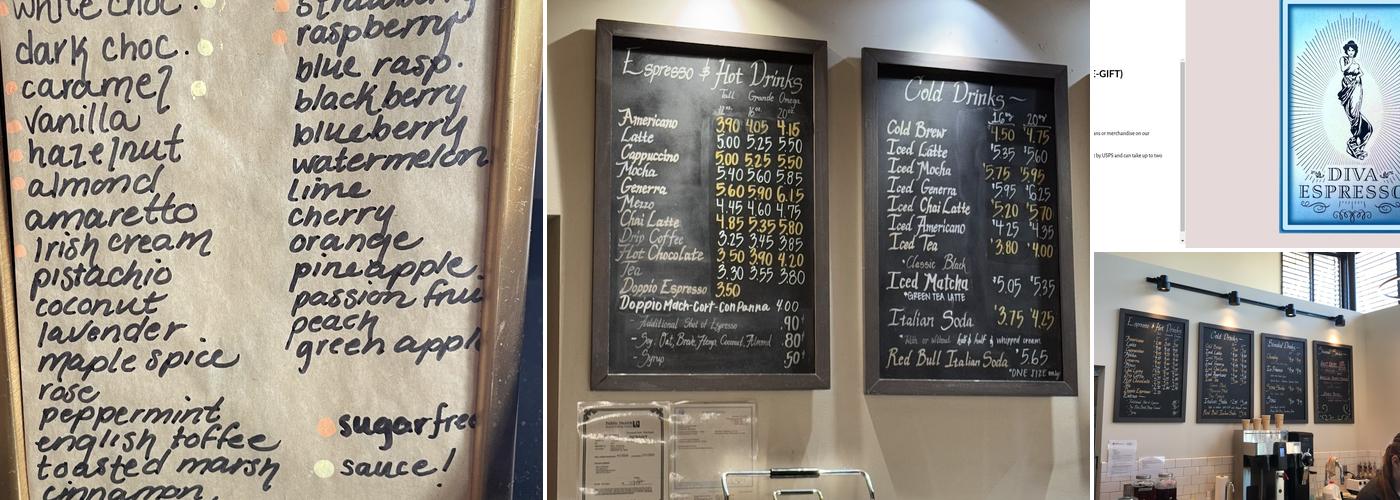 white choc.
dark choc.
caramel
vanilla
hazelnut
almond
amaretto
Irish cream
pistachio
coconut
lavender
maple spice
rose
peppermint
english toffee
toasted marsh
cinnamon
strawberry
raspberry
blue rasp.
blackberry
blueberry
watermelon
lime
cherry
orange
pineapple
passion frui
peach
green appl
sugar free
sauce!
Espresso & Hot Drinks
Tall Grande Omega
12oz. 16oz. 20oz.
Americano 3.90 4.05 4.15
Latte 5.00 5.25 5.50
Cappuccino 5.00 5.25 5.50
Mocha 5.40 5.60 5.85
Generra 5.60 5.90 6.15
Mezzo 4.45 4.60 4.75
Chai Latte 4.85 5.35 5.80
Drip Coffee 3.25 3.45 3.85
Hot Chocolate 3.50 3.90 4.20
Tea 3.30 3.55 3.80
Doppio Espresso 3.50
Doppio Mach-Cort-Con Panna 4.00
Additional Shot of Espresso .90¢
Soy, Oat, Breve, Hemp, Coconut, Almond .80¢
Syrup .50¢
Public Health
Cold Drinks~
16oz 20oz
Cold Brew $4.50 $4.75
Iced Latte $5.35 $5.60
Iced Mocha $5.75 $5.95
Iced Generra $5.95 $6.25
Iced Chai Latte $5.20 $5.70
Iced Americano $4.25 $4.35
Iced Tea $3.80 $4.00
*Classic Black
Iced Matcha $5.05 $5.35
*GREEN TEA LATTE
Italian Soda $3.75 $4.25
*With or without half & half & whipped cream
Red Bull Italian Soda $5.65
*ONE SIZE only
E-GIFT)
ans or merchandise on our
by USPS and can take up to two
DIVA
ESPRESSO
Espresso & Hot Drinks
Cold Drinks
Blended Drinks